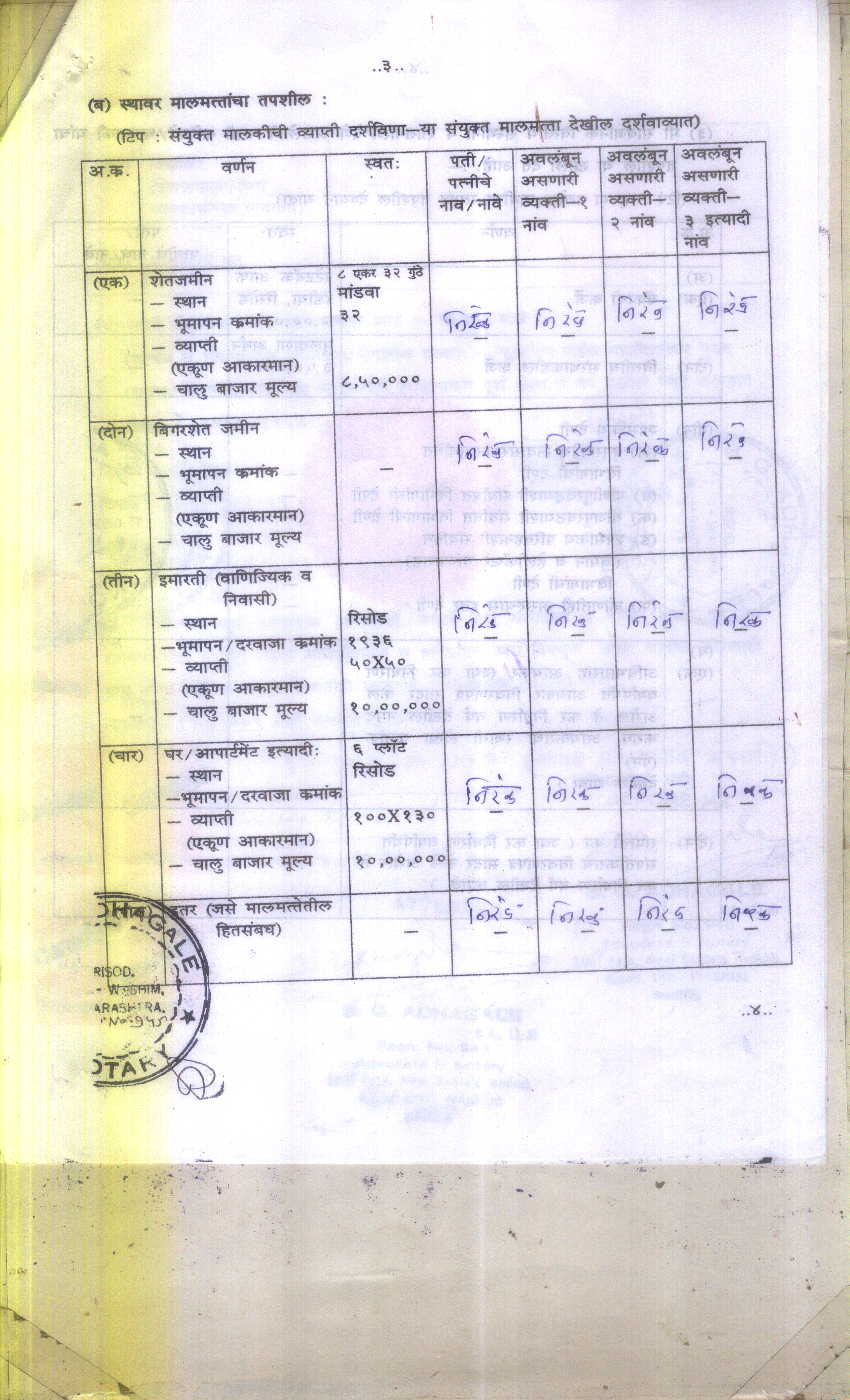 ..३..
(ब) स्थावर मालमत्तांचा तपशील :
(टिप : संयुक्त मालकीची व्याप्ती दर्शविणा-या संयुक्त मालमत्ता देखील दर्शवाव्यात)
अ.क. वर्णन स्वतः पती/ पत्नीचे नाव/नावे अवलंबून असणारी व्यक्ती-१ नांव अवलंबून असणारी व्यक्ती-२ नांव अवलंबून असणारी व्यक्ती-३ इत्यादी नांव
(एक) शेतजमीन ८ एकर ३२ गुंठे
- स्थान मांडवा
- भूमापन कमांक ३२ निरंक निरंक निरंक निरंक
- व्याप्ती
(एकूण आकारमान)
- चालु बाजार मूल्य ८,५०,०००
(दोन) बिगरशेत जमीन निरंक निरंक निरंक निरंक
- स्थान
- भूमापन कमांक -
- व्याप्ती
(एकूण आकारमान)
- चालु बाजार मूल्य
(तीन) इमारती (वाणिज्यिक व
निवासी)
- स्थान रिसोड निरंक निरंक निरंक निरंक
-भूमापन/दरवाजा कमांक १९३६
- व्याप्ती ५०X५०
(एकूण आकारमान)
- चालु बाजार मूल्य १०,००,०००
(चार) घर/आपार्टमेंट इत्यादी: ६ प्लॉट
- स्थान रिसोड
-भूमापन/दरवाजा कमांक निरंक निरंक निरंक निरंक
- व्याप्ती १००X१३०
(एकूण आकारमान)
- चालु बाजार मूल्य १०,००,०००
इतर (जसे मालमत्तेतील निरंक निरंक निरंक निरंक
हितसंबध) -
GALE
RISOD.
WASHIM.
ARASHTRA.
OTARY
..४..